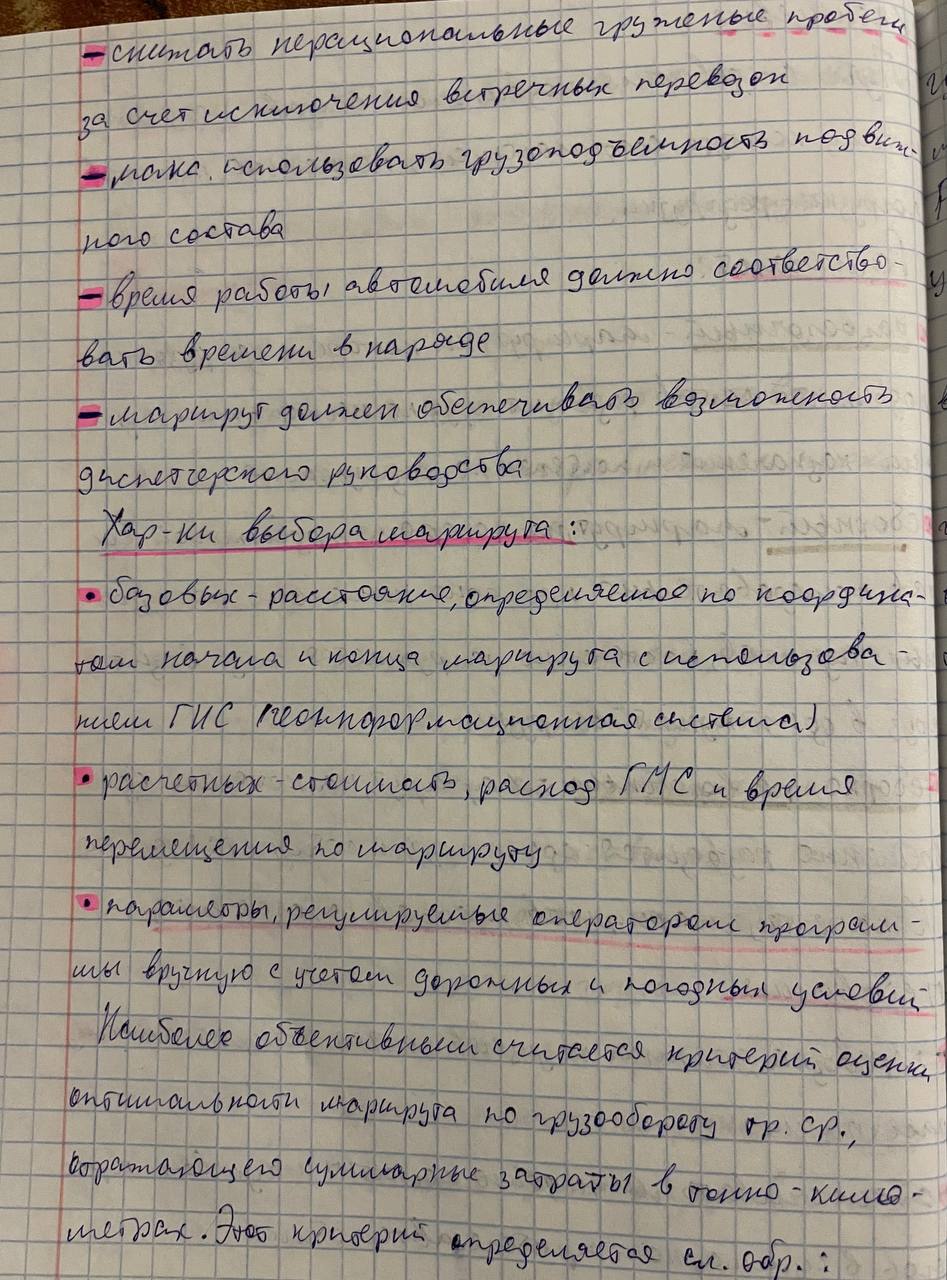 - снижать нерациональные груженые пробеги
за счет исключения встречных перевозок
- макс. использовать грузоподъемность подвиж-
ного состава
- время работы автомобиля должно соответство-
вать времени в наряде
- маршрут должен обеспечивать возможность
диспетчерского руководства
Хар-ки выбора маршрута:
• базовых - расстояние, определяемое по координа-
там начала и конца маршрута с использова-
нием ГИС (геоинформационная система)
• расчетных - стоимать, расход ГМС и время
перемещения по маршруту
• параметры, регулируемые оператором програм-
мы вручную с учетом дорожных и погодных условий
Наиболее объективным считается критерий оценки
оптимальности маршрута по грузообороту тр. ср.,
отражающего суммарные затраты в тонно-кило-
метрах. Этот критерий определяется сл. обр.: